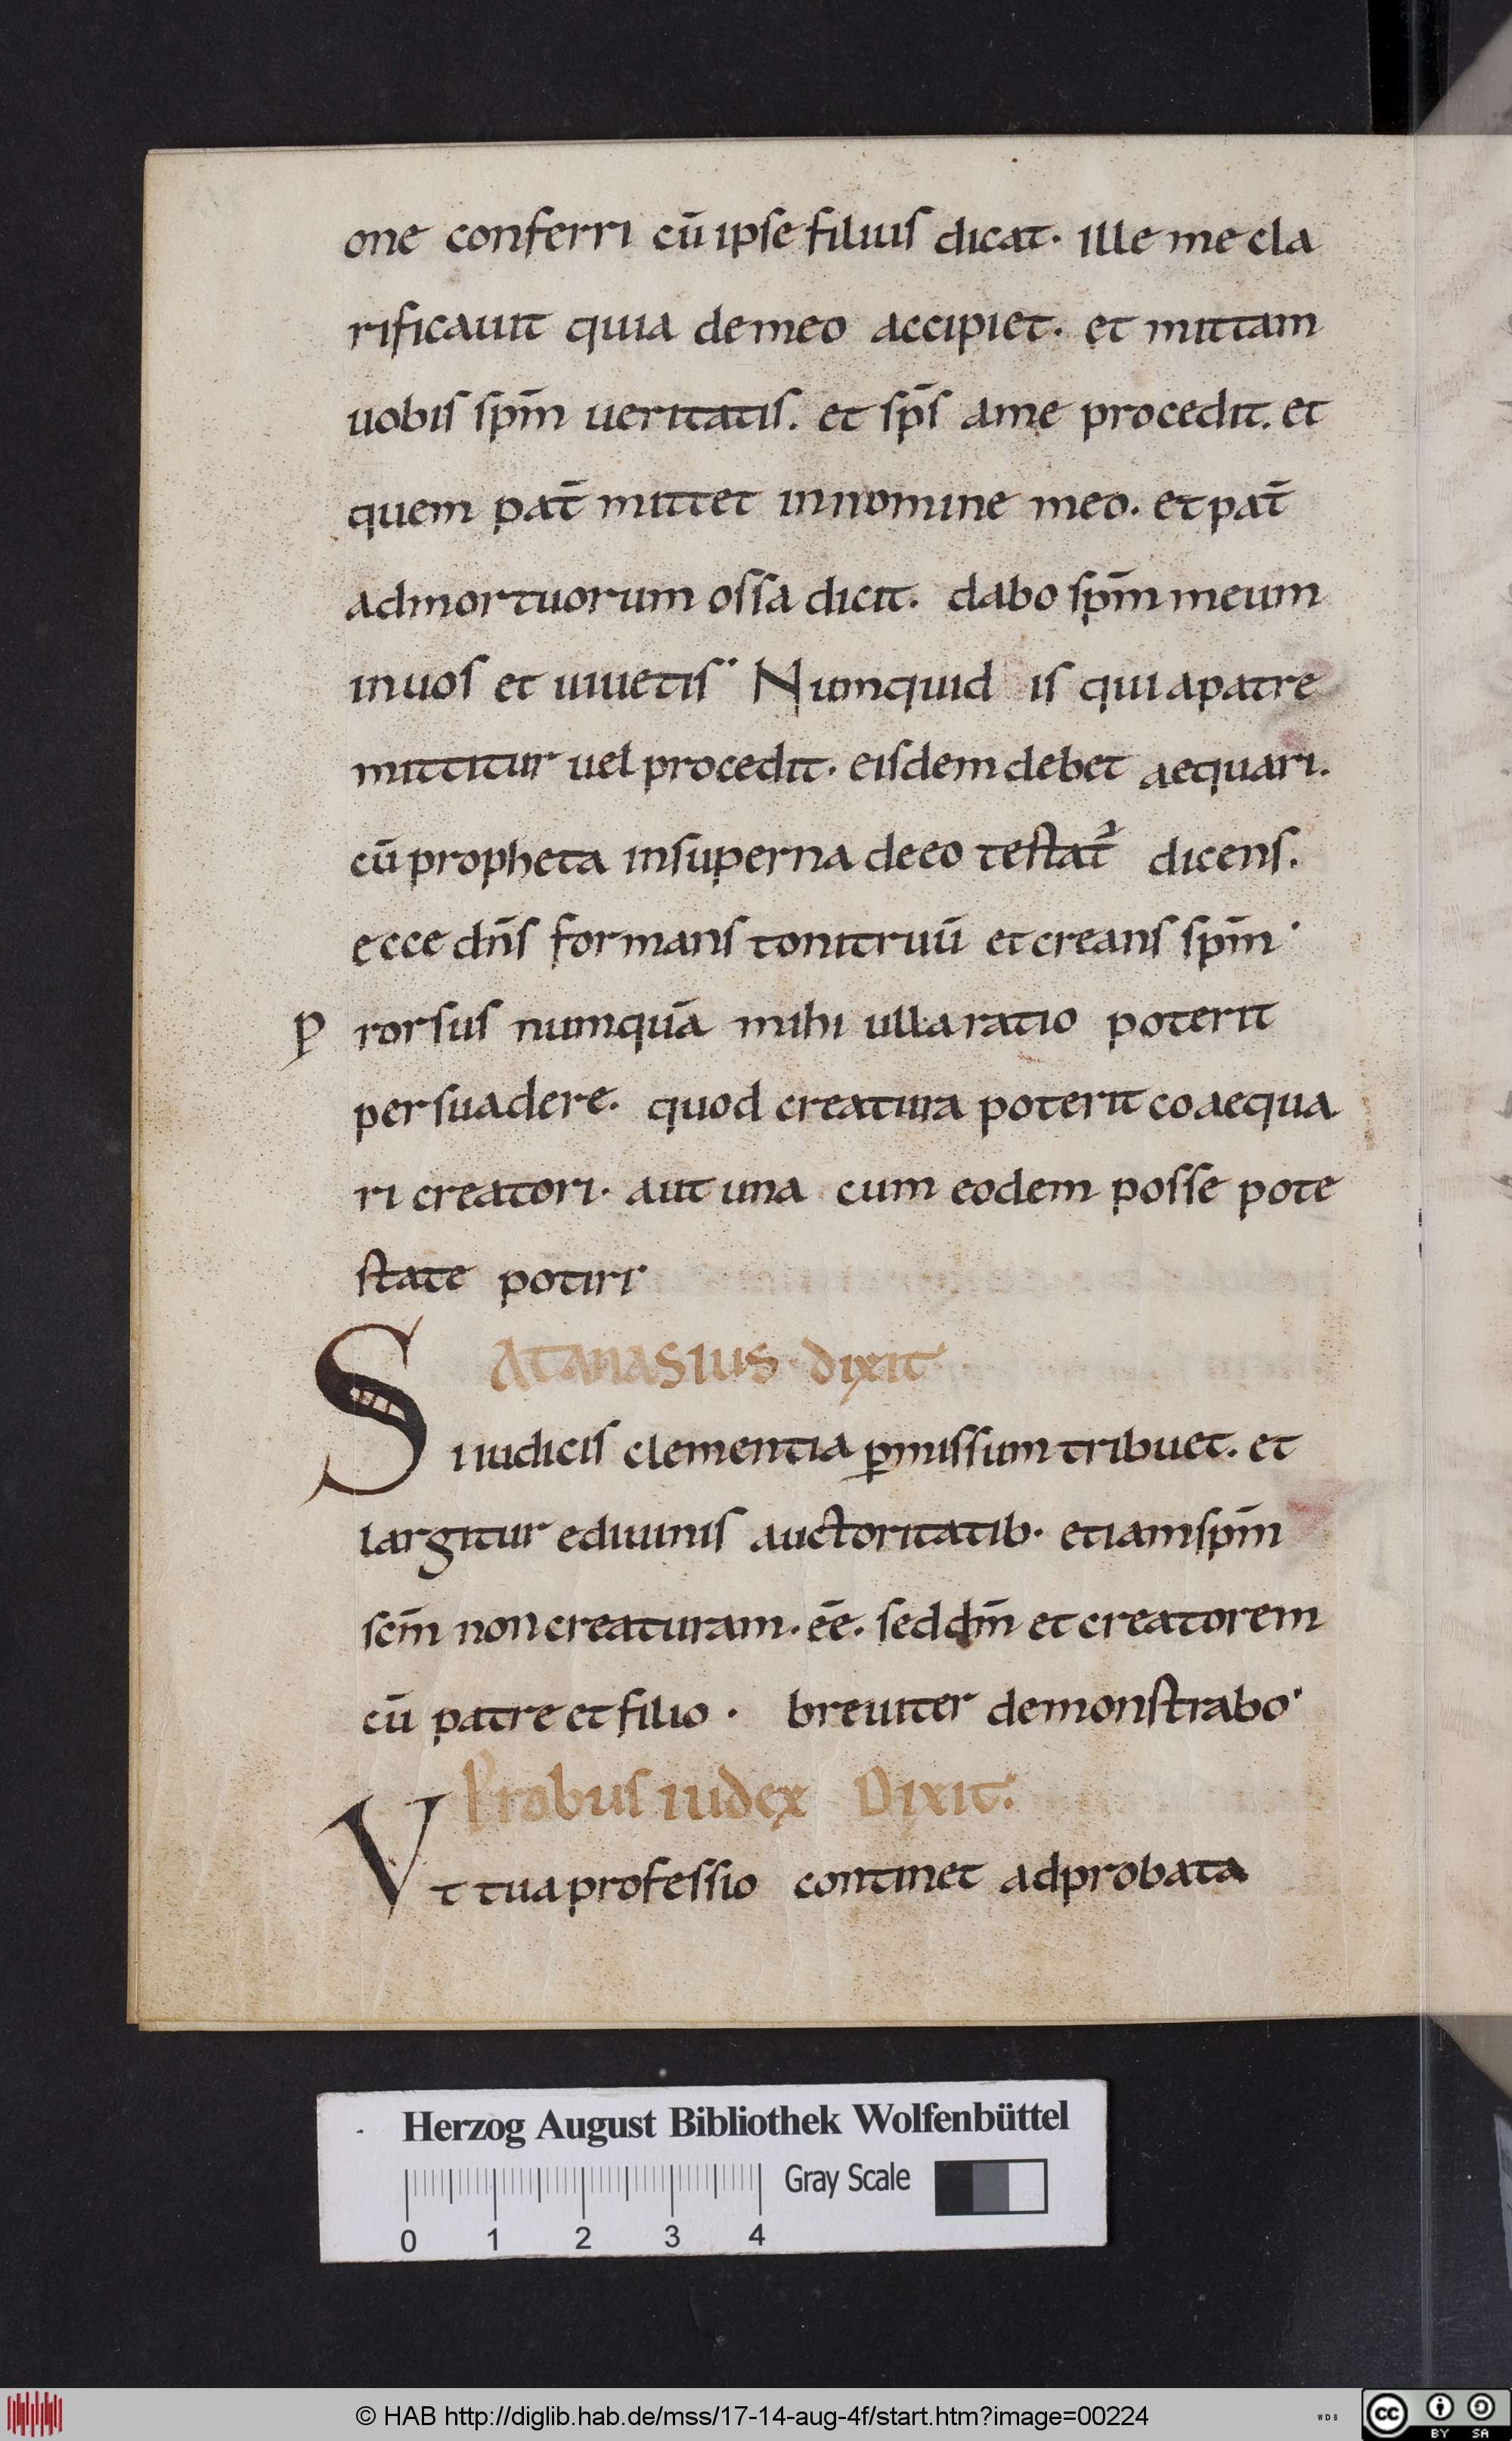 one conferri cū ipse filius dicat· ille me cla
rificauit quia demeo accipiet· et mittam
uobis spm̄ ueritatis. et sps̄ ame procedit. et
quem pat̄ mittet innomine meo. et pat̄
admortuorum ossa dicit. dabo spm̄ meum
inuos et uiuetis· Numquid is qui apatre
mittitur uel procedit· eisdem debet aequari.
cū propheta insuperna deeo testat᷑ dicens.
ecce dn̄s formans tonitruū et creans spm̄·
prorsus numquā mihi ulla ratio poterit
persuadere. quod creatura poterit coaequa
ri creatori· aut una cum eodem posse pote
state potiri·
ATANASIUS dixit
Si iudicis clementia ꝑmissum tribuet. et
largitur ediuinis auctoritatib· etiam spm̄
scm̄ non creaturam· eē. sed dm̄ et creatorem
cū patre et filio · breuiter demonstrabo·
Probus iudex Dixit.
Vt tua professio continet adprobata
Herzog August Bibliothek Wolfenbüttel
Gray Scale
0 1 2 3 4
© HAB http://diglib.hab.de/mss/17-14-aug-4f/start.htm?image=00224
WDB
cc BY SA